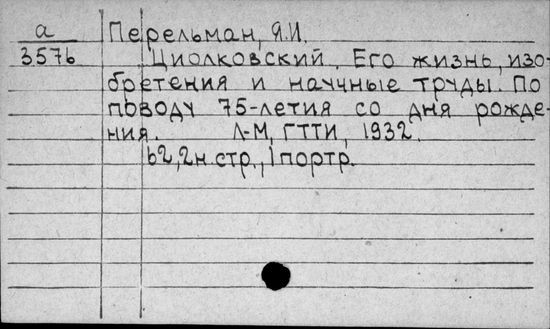 а Перельман, Я.И.
3576 Циолковский. Его жизнь, изо-
бретения и научные труды. По
поводу 75-летия со дня рожде-
ния. Л-М, ГТТИ, 1932.
62, 2 н. стр., 1 портр.